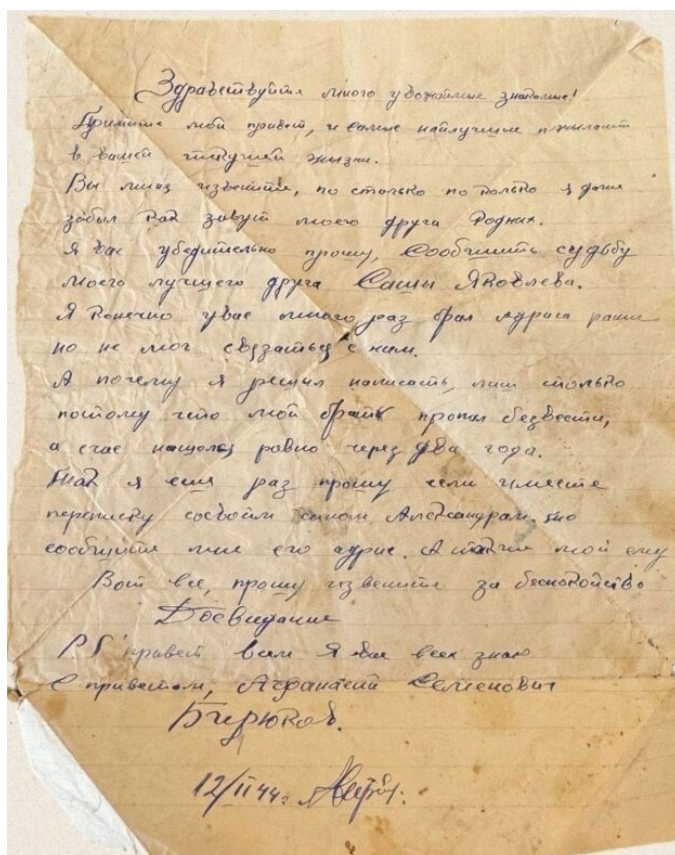 Здравствуйти много уважаимые знакомые!
Примите мой привет, и самые наилучшие пжыланя
в вашей текущей жызни.
Вы миня извените, по столько по колько я даже
забыл как завут моего друга Родных.
Я вас убедительно прошу, Сообчить судьбу
моего лучшего друга Сашы Яковлева.
Я конечно увас много раз брал Адриса раньше
но не мог связатьця с ним.
А почему я решыл написать, лиш столько
потому что мой брат пропал безвести,
а счас нашолся ровно через два года.
Так я ещя раз прошу если имеете
переписку сосвоим сыном Александрам. то
сообщите мне его адрис. А также мой ему
Вот все, прошу извените за беспокойство
Досвидание
PS привет всем Я вас всех знаю
С приветом, Афанасий Семенович
Бирюков.
12/II 44г.